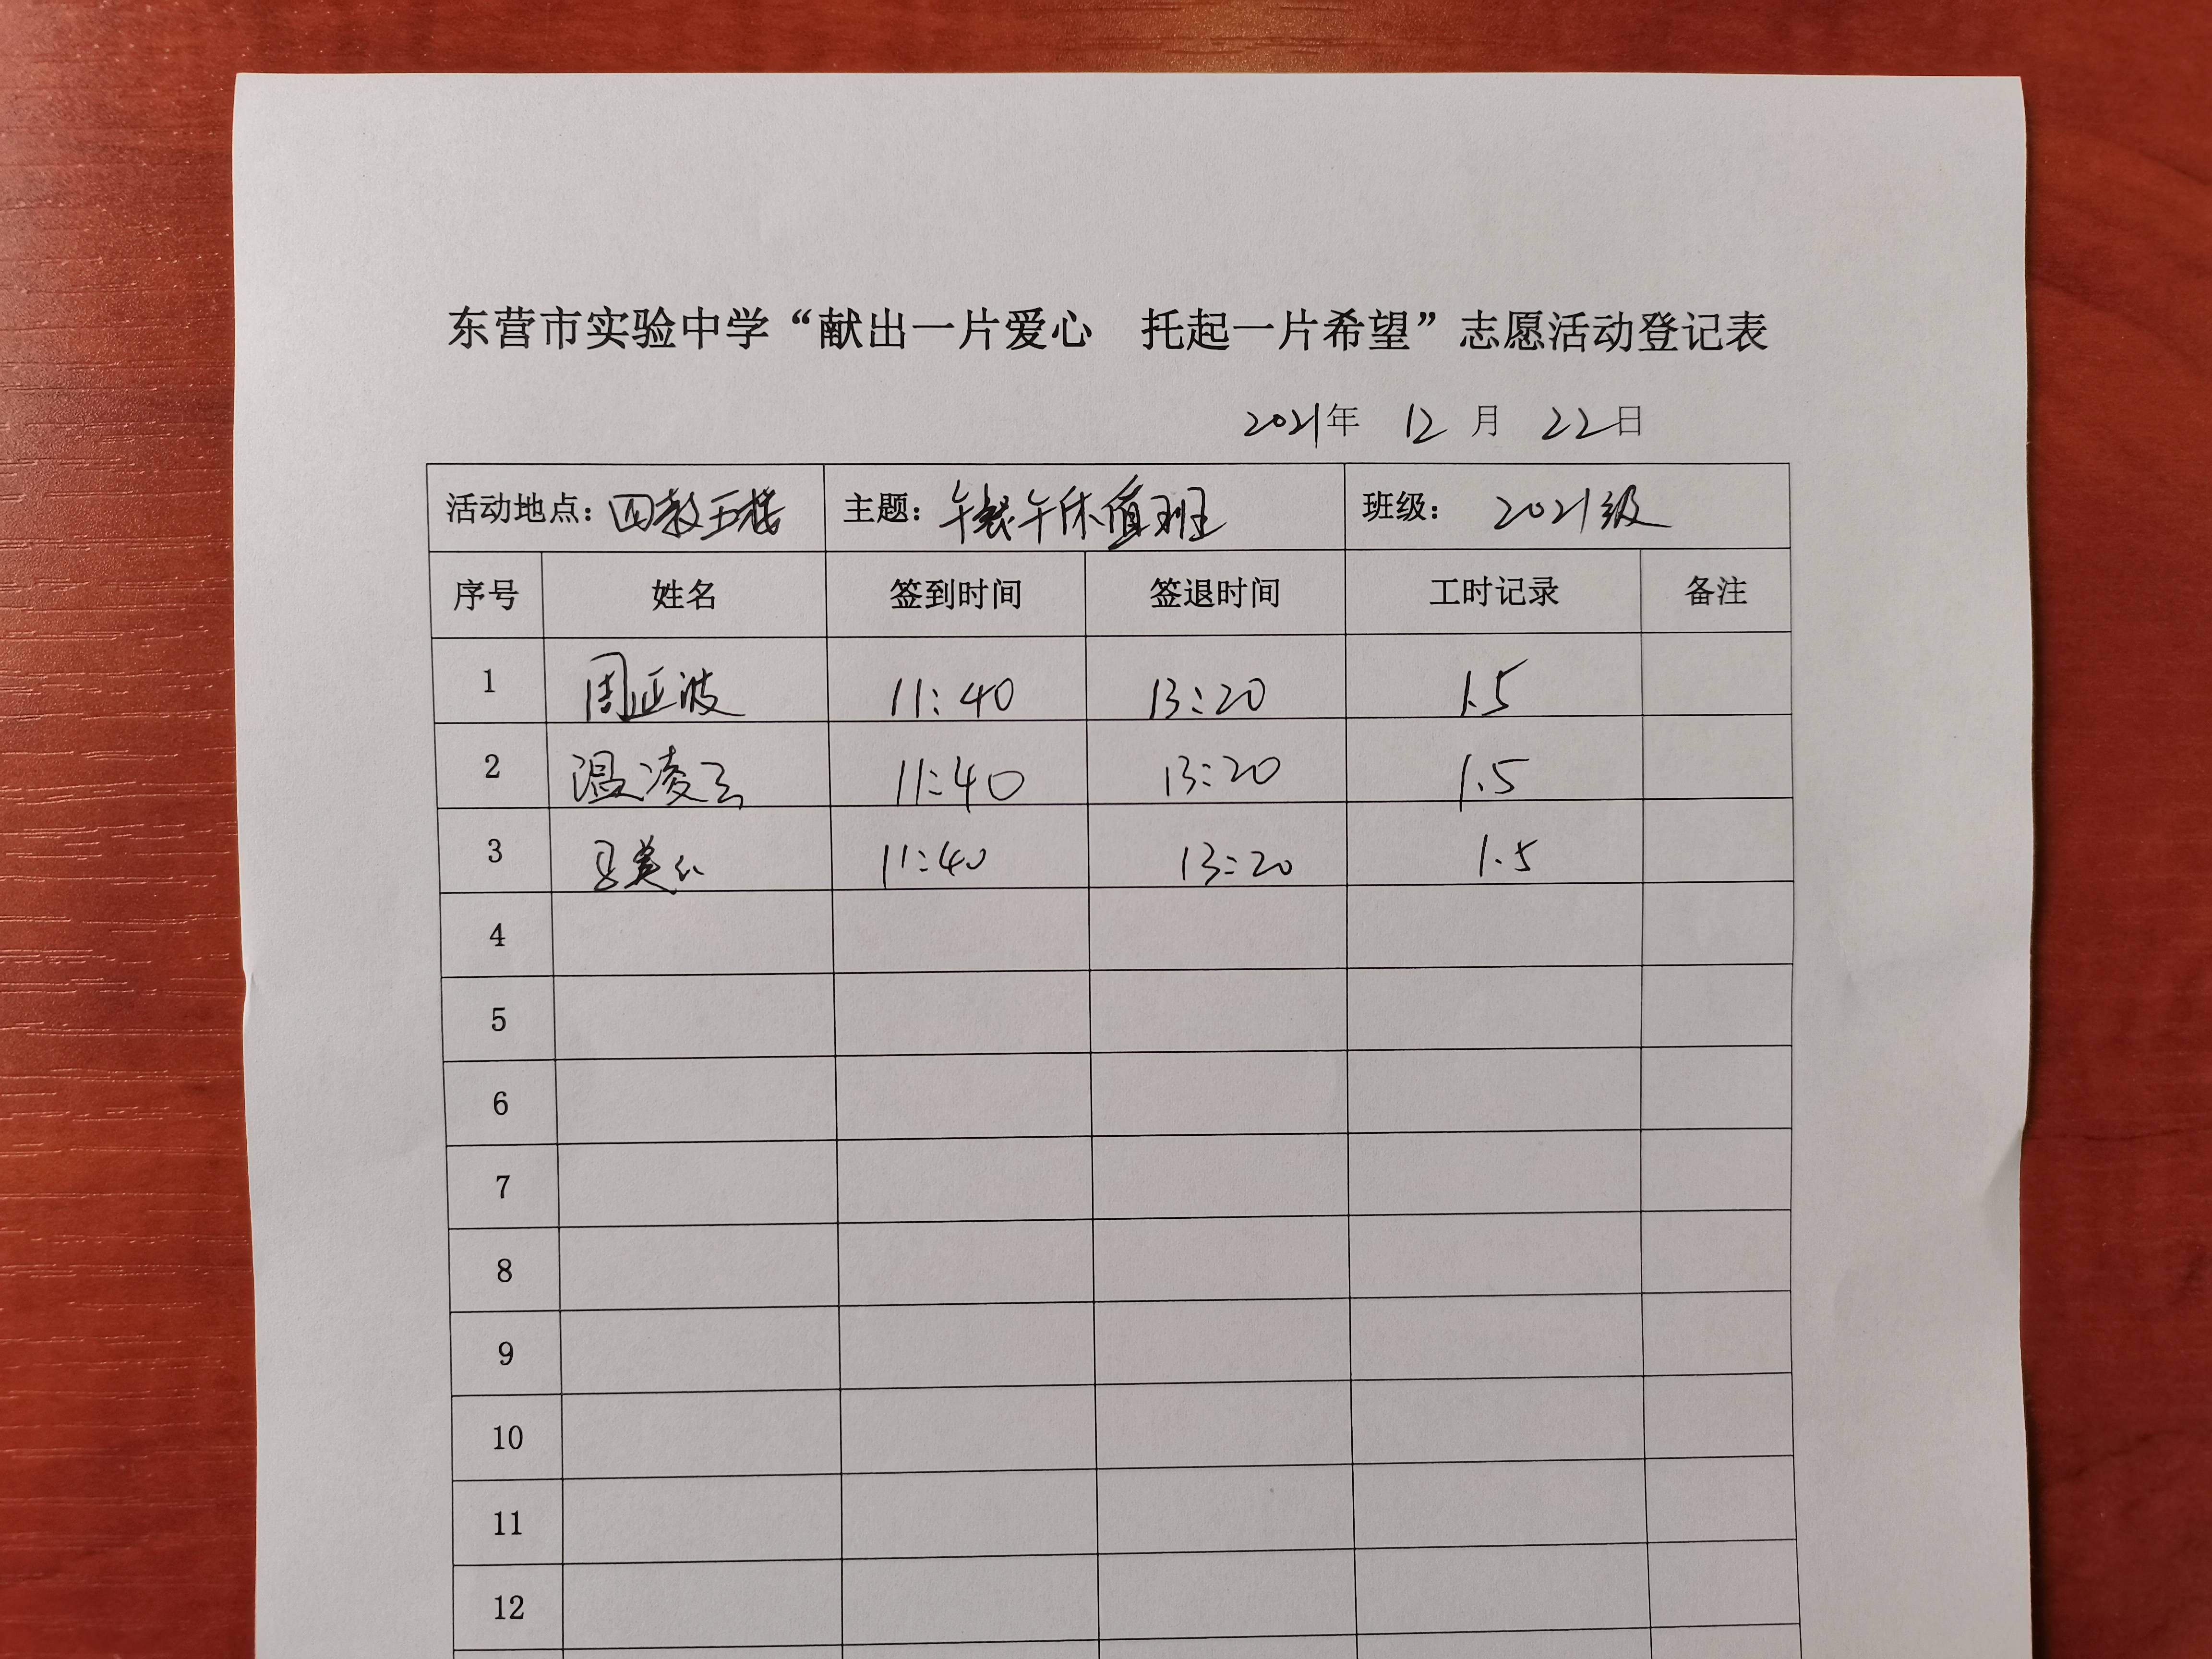 东营市实验中学“献出一片爱心 托起一片希望”志愿活动登记表
2021年 12 月 22日
活动地点：四教五楼 主题：午餐午休值班 班级：2021级
序号 姓名 签到时间 签退时间 工时记录 备注
1 周正波 11:40 13:20 1.5
2 温凌云 11:40 13:20 1.5
3 11:40 13:20 1.5
4
5
6
7
8
9
10
11
12